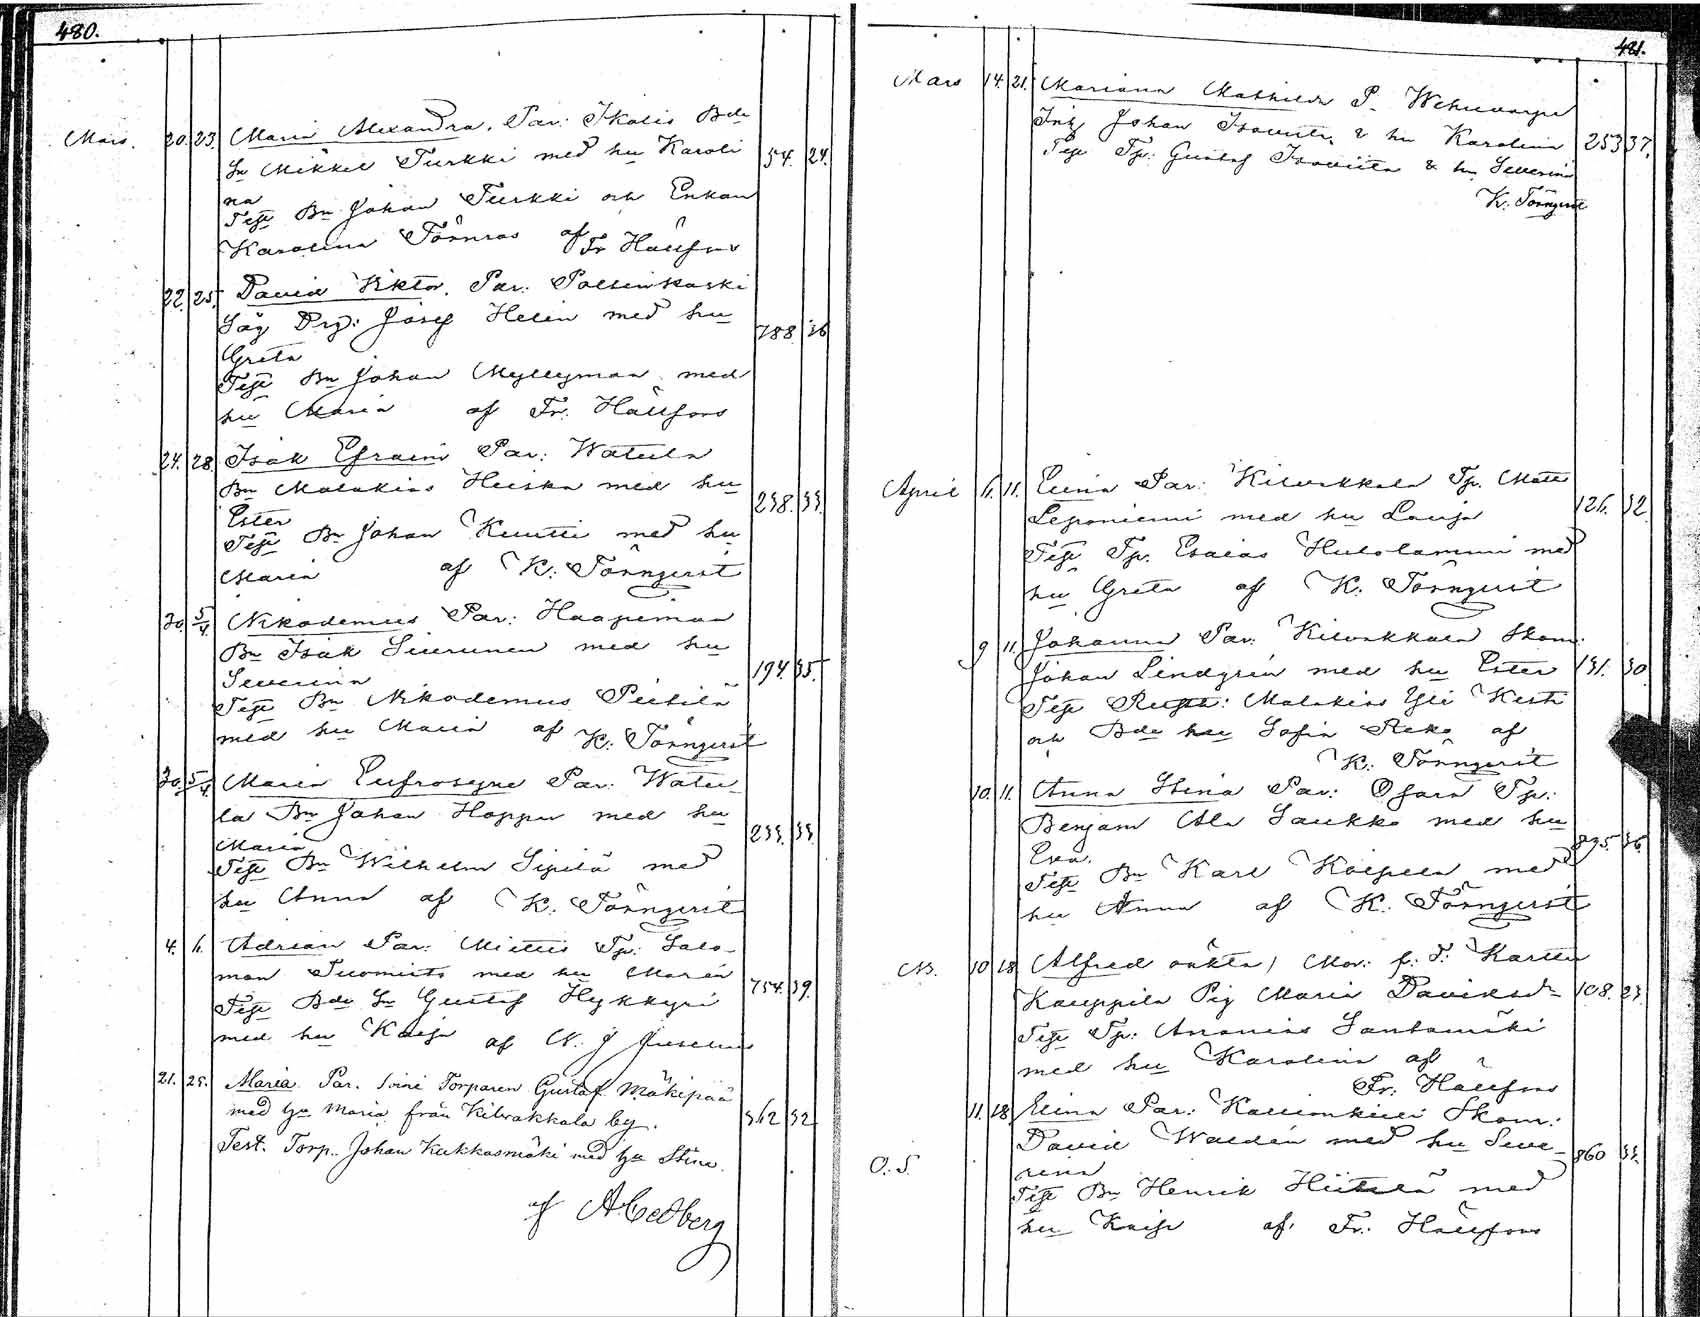 480.
Mars. 20. 23. Maria Alexandra. Par: Ikalis Bde
Sn Mikkel Turkki med hu Karoli 54. 24.
na
Test Bn Johan Turkki och Enkan
Karolina Törnros af Fr Hällfors
22. 25. David Viktor. Par: Poltinkoski
Säg Drg: Josef Helin med hu 788 36
Greta
Test Bn Johan Myllyman med
hu Maria af Fr. Hällfors
24. 28. Isak Efraim Par: Watula
Bn Malakias Heiska med hu 238. 33.
Ester
Test Bn Johan Knutti med hu
Maria af K: Törnqvist
30. 5/4. Nikodemus Par: Haapimaa
Bn Isak Siurunen med hu 194. 35.
Severina
Test Bn Nikodemus Pietilä
med hu Maria af K: Törnqvist
30. 5/4. Maria Eufrosyne Par: Watu-
la Bn Johan Hoppu med hu 233. 33.
Maria
Test Bn Wilhelm Sipilä med
hu Anna af K: Törnqvist
4. 6. Adrian Par: Miettis Tp: Salo-
mon Tuomisto med hu Maria 754. 39.
Test Bde Sn Gustaf Hykkyri
med hu Kaisa af N. J Juselius
21. 25. Maria Par. Soini Torparen Gustaf Mäkipää
med hu Maria från Kilvakkala by. 362 32
Test. Torp. Johan Kukkasmäki med hu Stina.
af A Cedberg
481.
Mars 14. 21. Mariana Mathilda P. Wehuvarpe
Inh Johan Isoviita & hu Karolina 253 37.
Test Tp: Gustaf Isoviita & hu Severina
K. Törnqvist
April 6. 11. Eliina Par: Kilvakkala Tp. Matts
Leponiemi med hu Lovisa 126. 32.
Test Tp. Esaias Hulolammi med
hu Greta af K. Törnqvist
9 11 Johanna Par: Kilvakkala Skom:
Johan Lindgrén med hu Ester 131. 30.
Test Rusth: Malakias Yli Kesti
och Bde hu Sofia Reko af
K: Törnqvist
10. 11. Anna Stina Par: Osara Tp:
Benjam Ala Saukko med hu
Eva. 895. 36.
Test Bn Karl Koipila med
hu Anna af K. Törnqvist
M. 10 18 Alfred oäkta) Mor: f. T: Karttu
Kauppila Pig Maria Davidsdr 108. 23.
Test Tp: Ananias Santamäki
med hu Karolina af
Fr: Hällfors
11. 18. Elina Par: Kallionkieli Skom:
David Waldén med hu Seve-
O. S. rina 860 33.
Test Bn Henrik Hiitelä med
hu Kaisa af. Fr: Hällfors